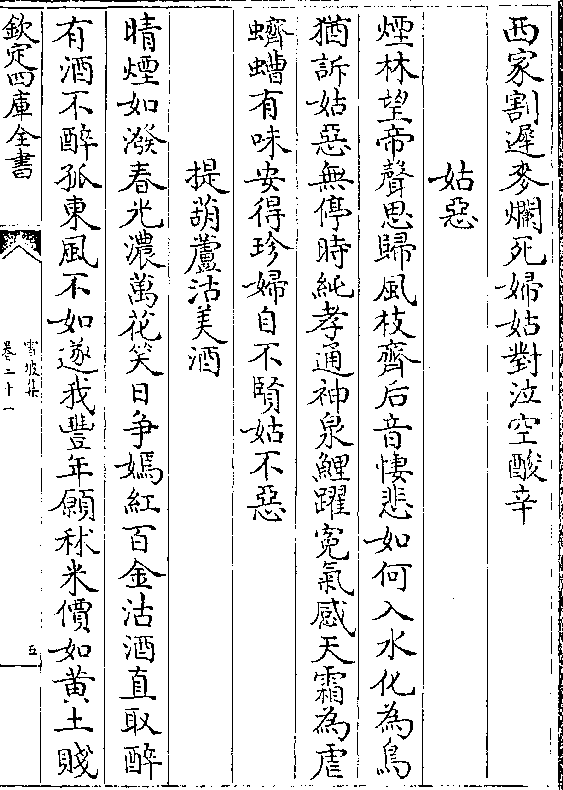 西家割遲麥爛死婦姑對泣空酸辛
姑惡
煙林望帝聲思歸風枝齊后音悽悲如何入水化為鳥
猶訴姑惡無停時純孝通神泉鯉躍寃氣感天霜為虐
蠐螬有味安得珍婦自不賢姑不惡
提葫蘆沽美酒
晴煙如潑春光濃萬花笑日争嫣紅百金沽酒直取醉
有酒不醉孤東風不如遂我豐年願秫米價如黄土賤
欽定四庫全書
雪坡集
卷二十一
五